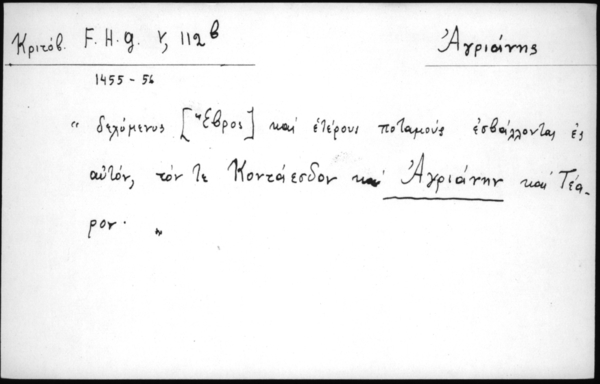 Κριτόβ. F. H. g. V, 112 b
Ἀγριάνης
1455 - 56
" δεχόμενος [Ἕβρος] καὶ ἑτέρους ποταμοὺς ἐσβάλλοντας ἐς
αὐτόν, τόν τε Κοντάεσδον καὶ Ἀγριάνην καὶ Τέα-
ρον. "